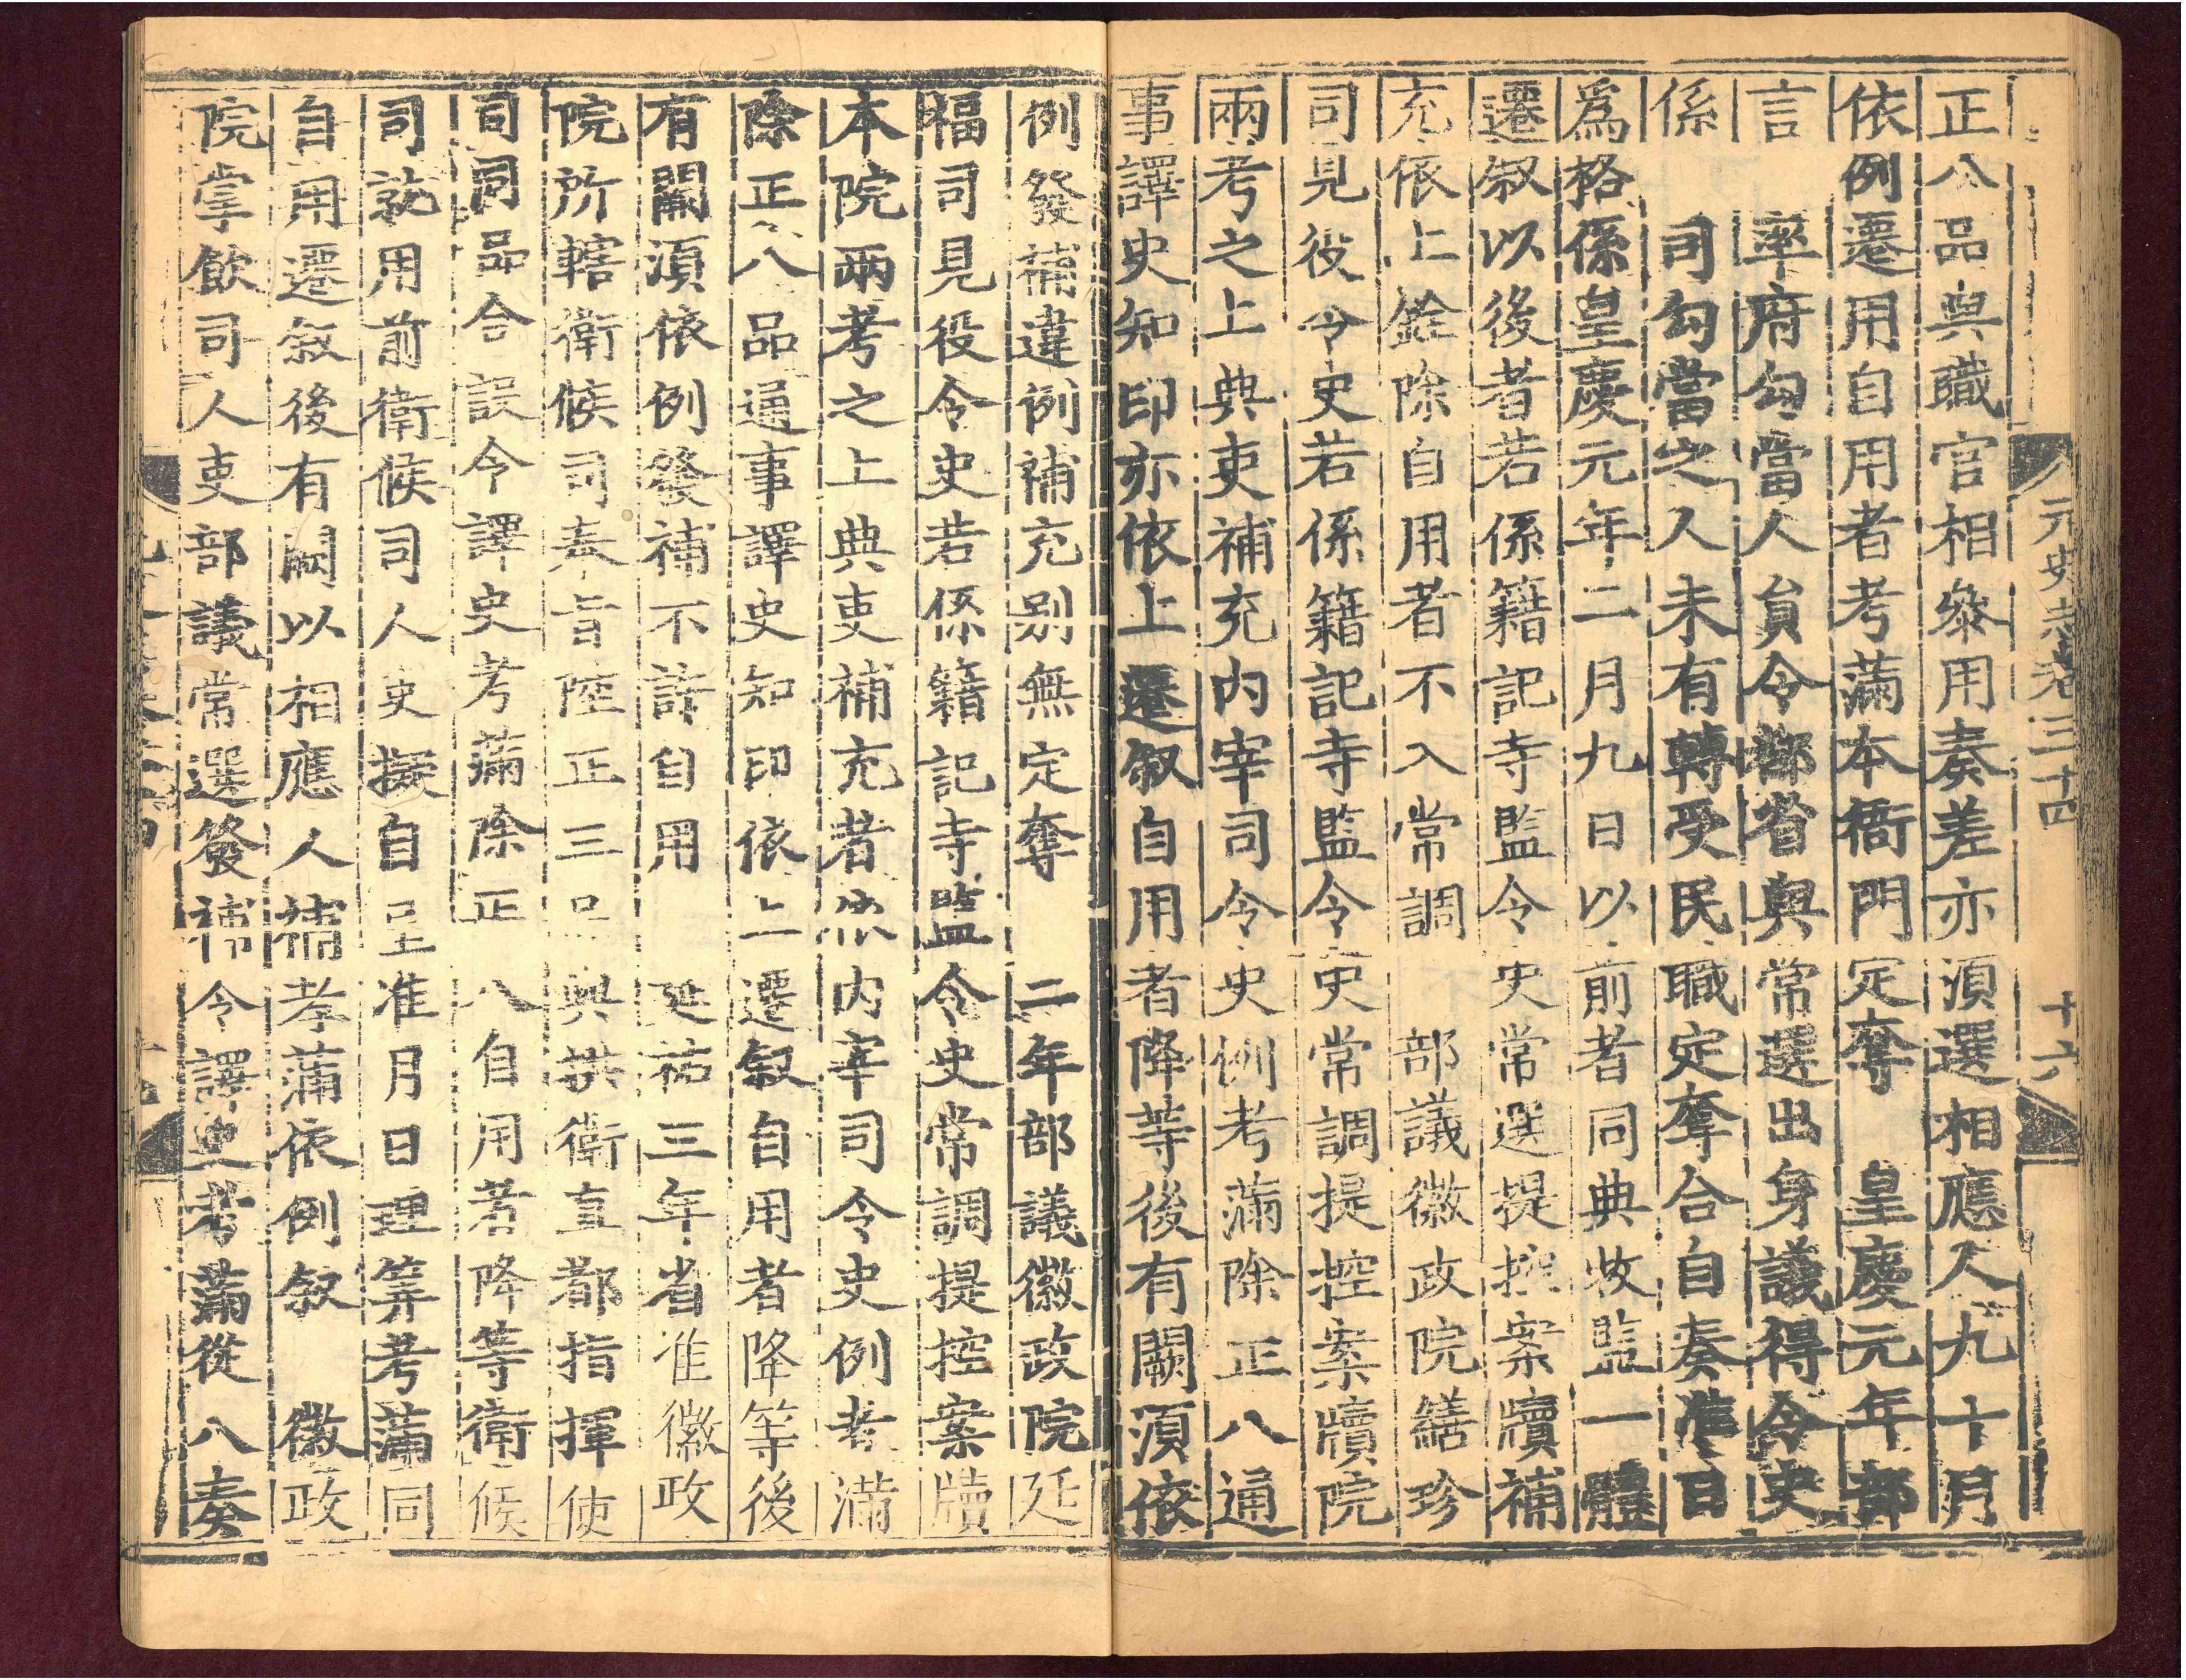 元史志卷三十四 十六
正八品與職官相參用奏差亦須選相應人九十月
依例遷用自用者考滿本衙門定奪 皇慶元年部
言 率府勾當人員令都省與常選出身議得令史
係 司勾當之人未有轉受民職定奪合自奏准日
爲格係皇慶元年二月九日以前者同典牧監一體
遷叙以後者若係籍記寺監令史常選提控案牘補
充依上銓除自用者不入常調 部議徽政院繕珍
司見役令史若係籍記寺監令史常調提控案牘院
兩考之上典吏補充內宰司令史例考滿除正八通
事譯史知印亦依上遷叙自用者降等後有闕須依
例發補違例補充别無定奪 二年部議徽政院延
福司見役令史若係籍記寺監令史常調提控案牘
本院兩考之上典吏補充者依內宰司令史例考滿
除正八品通事譯史知印依上遷叙自用者降等後
有闕須依例發補不許自用 延祐三年省准徽政
院所轄衛候司奉旨陞正三品與拱衛直都指揮使
司同品合設令譯史考滿除正 八自用者降等衛候
司就用前衛候司人吏擬自呈准月日理筭考滿同
自用遷叙後有闕以相應人補考滿依例叙 徽政
院掌飲司人吏部議常選發補令譯史考滿從八奏